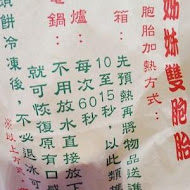 姊妹雙胞胎
胞胎加熱方式:
箱:先預熱再將物品送
10至15秒,以此類
爐:每次60秒
電鍋:不用放水直接放
就可恢復原有口
餅冷凍後,不必退冰可
※以上方式